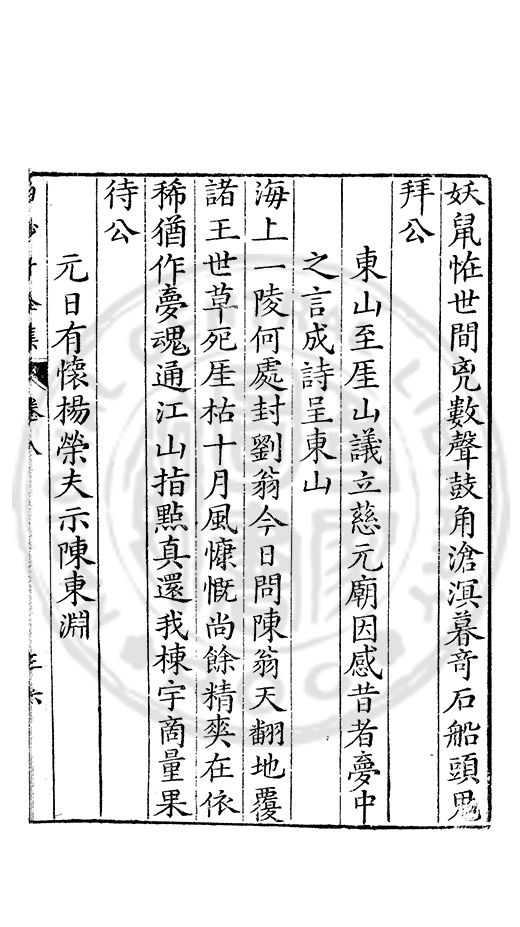 妖鼠恠世間兇數聲鼓角滄溟暮竒石船頭鬼
拜公
東山至厓山議立慈元廟因感昔者夢中
之言成詩呈東山
海上一陵何處封劉翁今日問陳翁天翻地覆
諸王世草死厓枯十月風慷慨尚餘精爽在依
稀猶作夢魂通江山指點真還我棟宇商量果
待公
元日有懷楊榮夫示陳東淵
白沙子全集 卷八